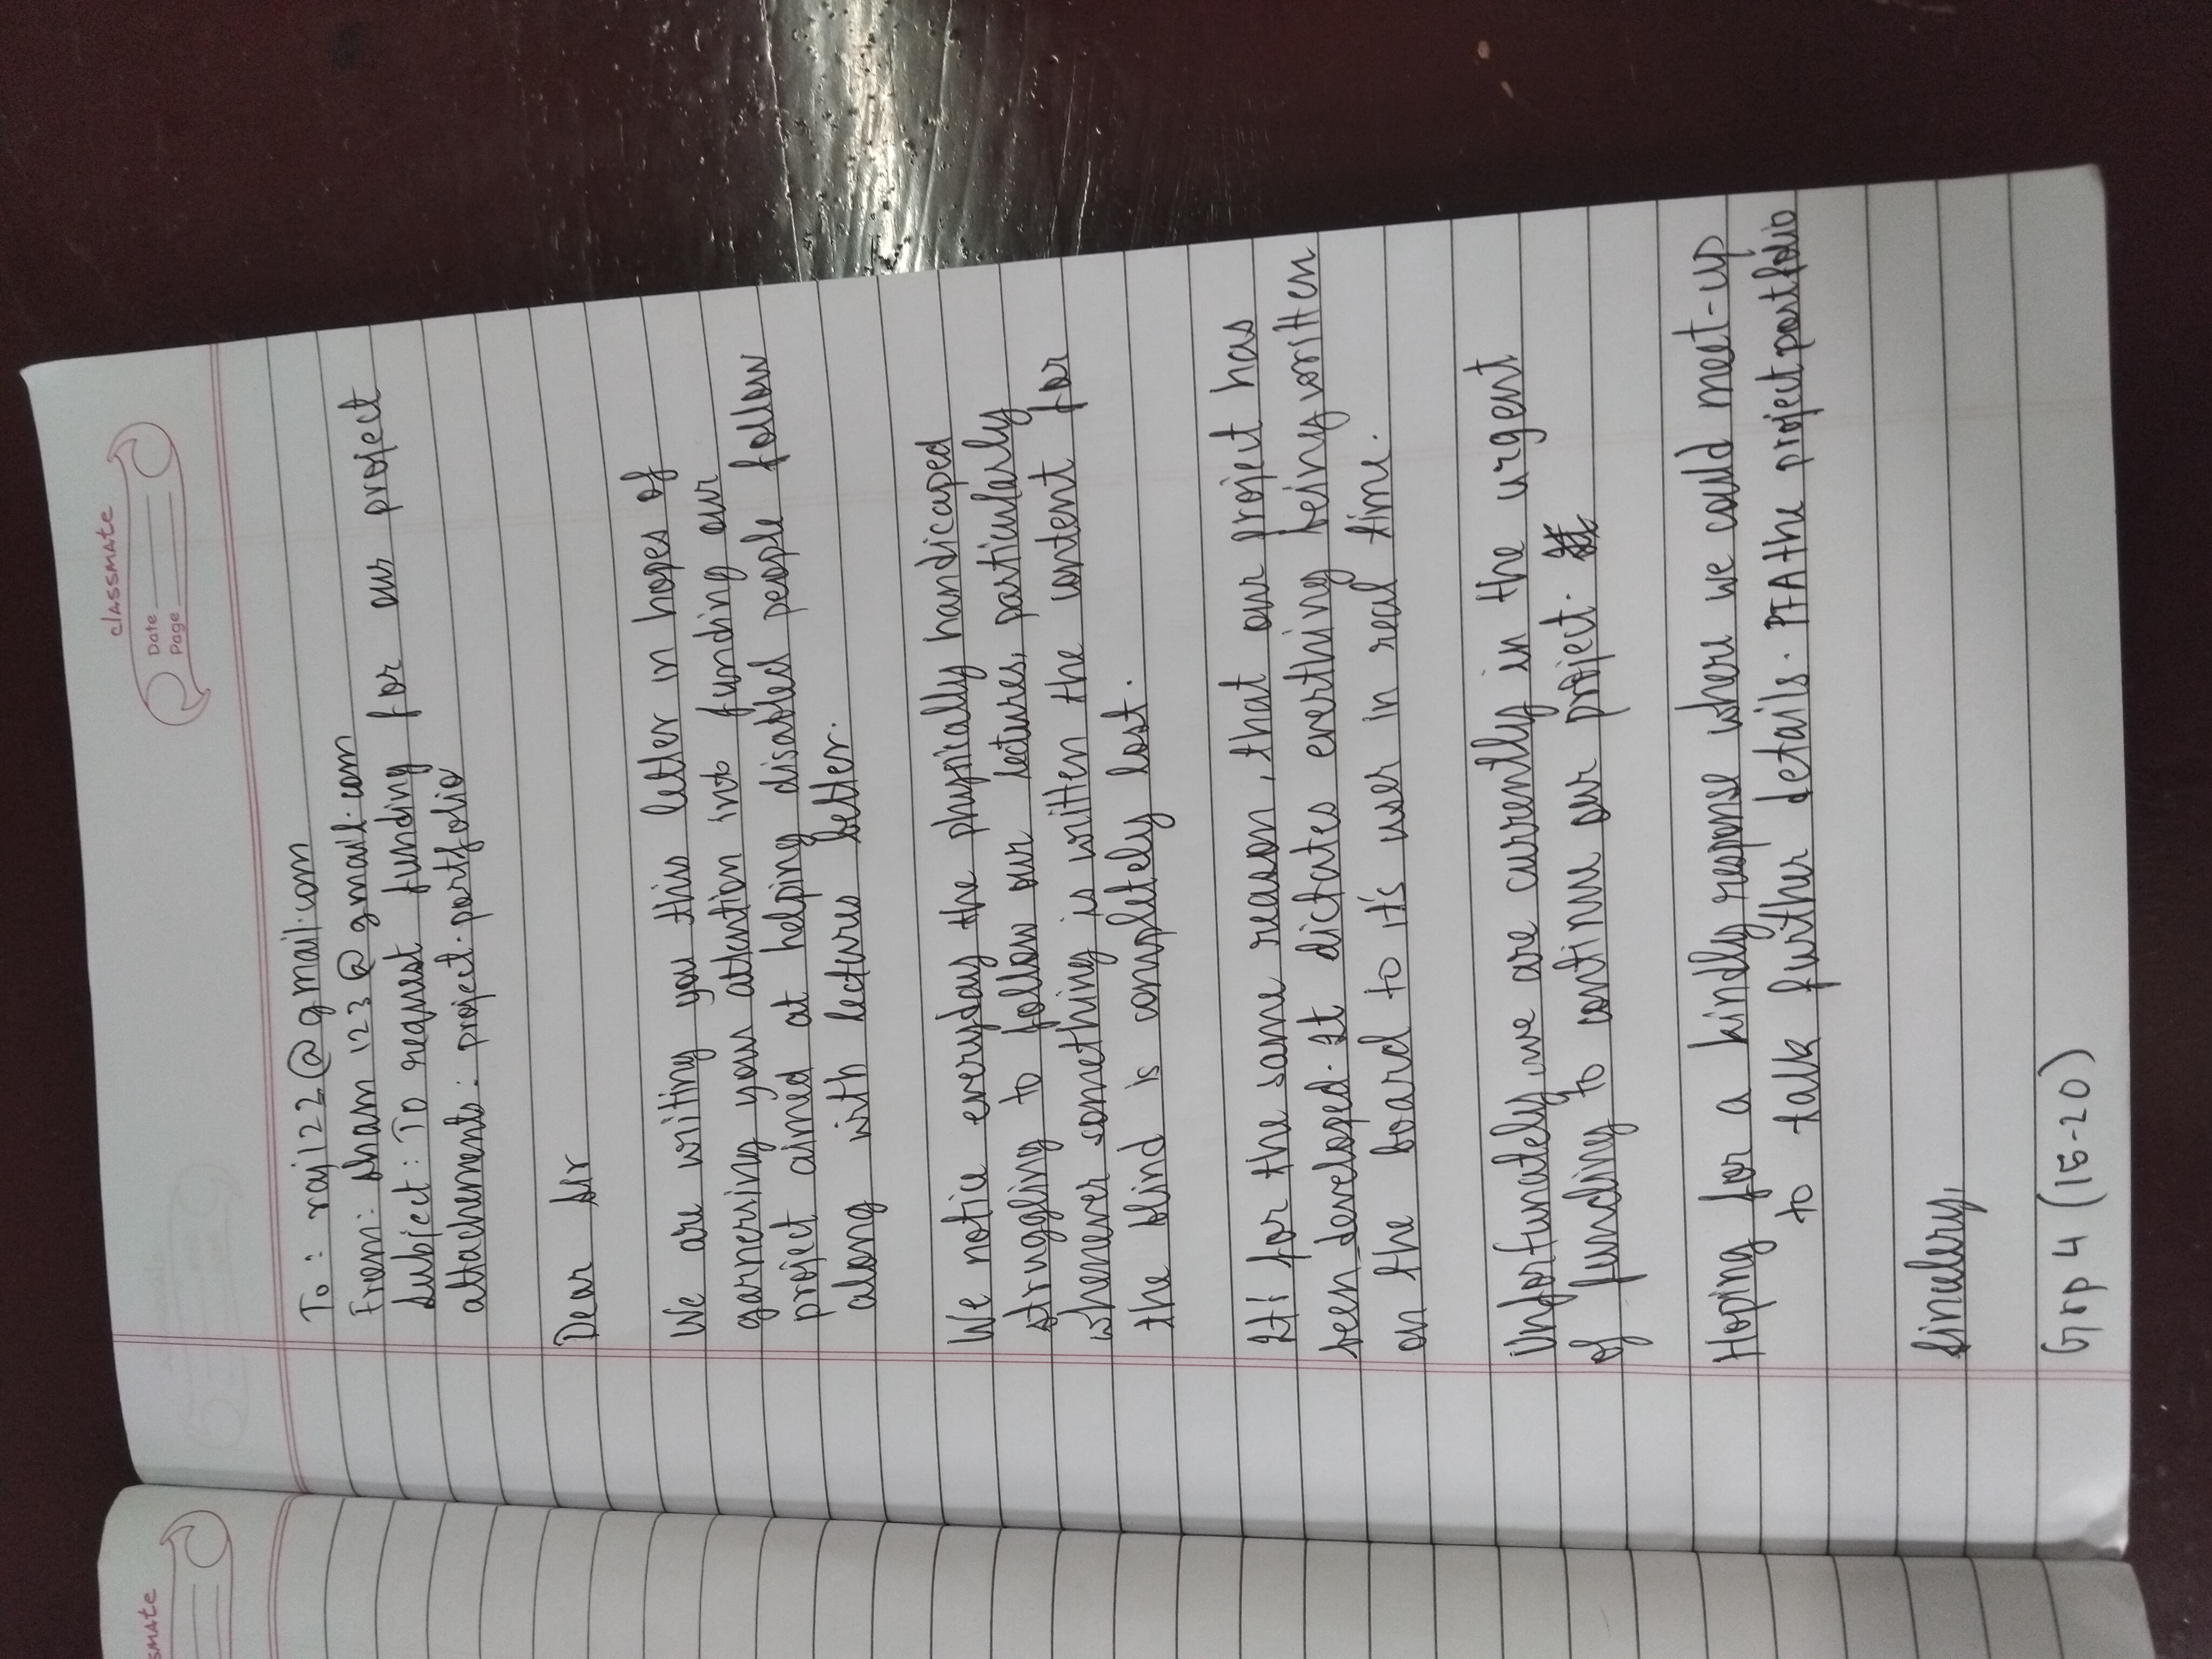 smate
classmate
Date
Page
To : raj122@gmail.com
From: sham 123@gmail.com
Subject: To request funding for our project
attachements: project.portfolio
Dear Sir
We are writing you this letter in hopes of
garnerring your attention into funding our
project aimed at helping disabled people follow
along with lectures better.
We notice everyday the physically handicaped
struggling to follow our lectures, particularly
whenever something is written the content for
the blind is completely lost.
It' for the same reason, that our project has
been developed. It dictates everthing being written
on the board to it's user in real time.
Unfortunately, we are currently in the urgent
of funding to continue our project.
Hoping for a kindly response where we could meet-up
to talk further details. PFA the project portfolio
Sincelery,
Grp 4 (15-20)